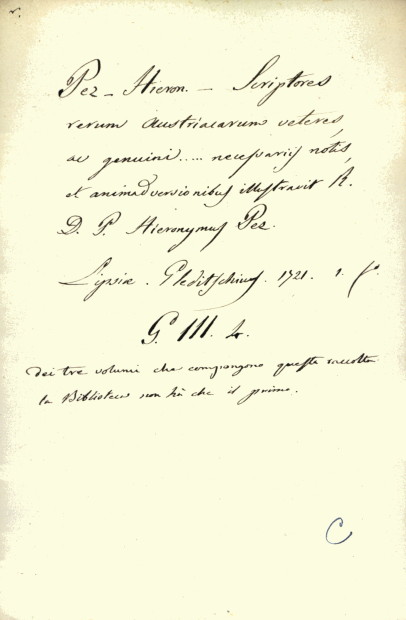 Pez - Hieron. - Scriptores
rerum austriacarum veteres,
ac genuini..... necessariis notis,
et animadversionibus illustravit R.
D. P. Hieronymus Pez.
Lipsiæ. Gleditschius. 1721. 1. f.º
G. III. 4.
Dei tre volumi che compongono questa raccolta
la Biblioteca non ha che il primo.
C